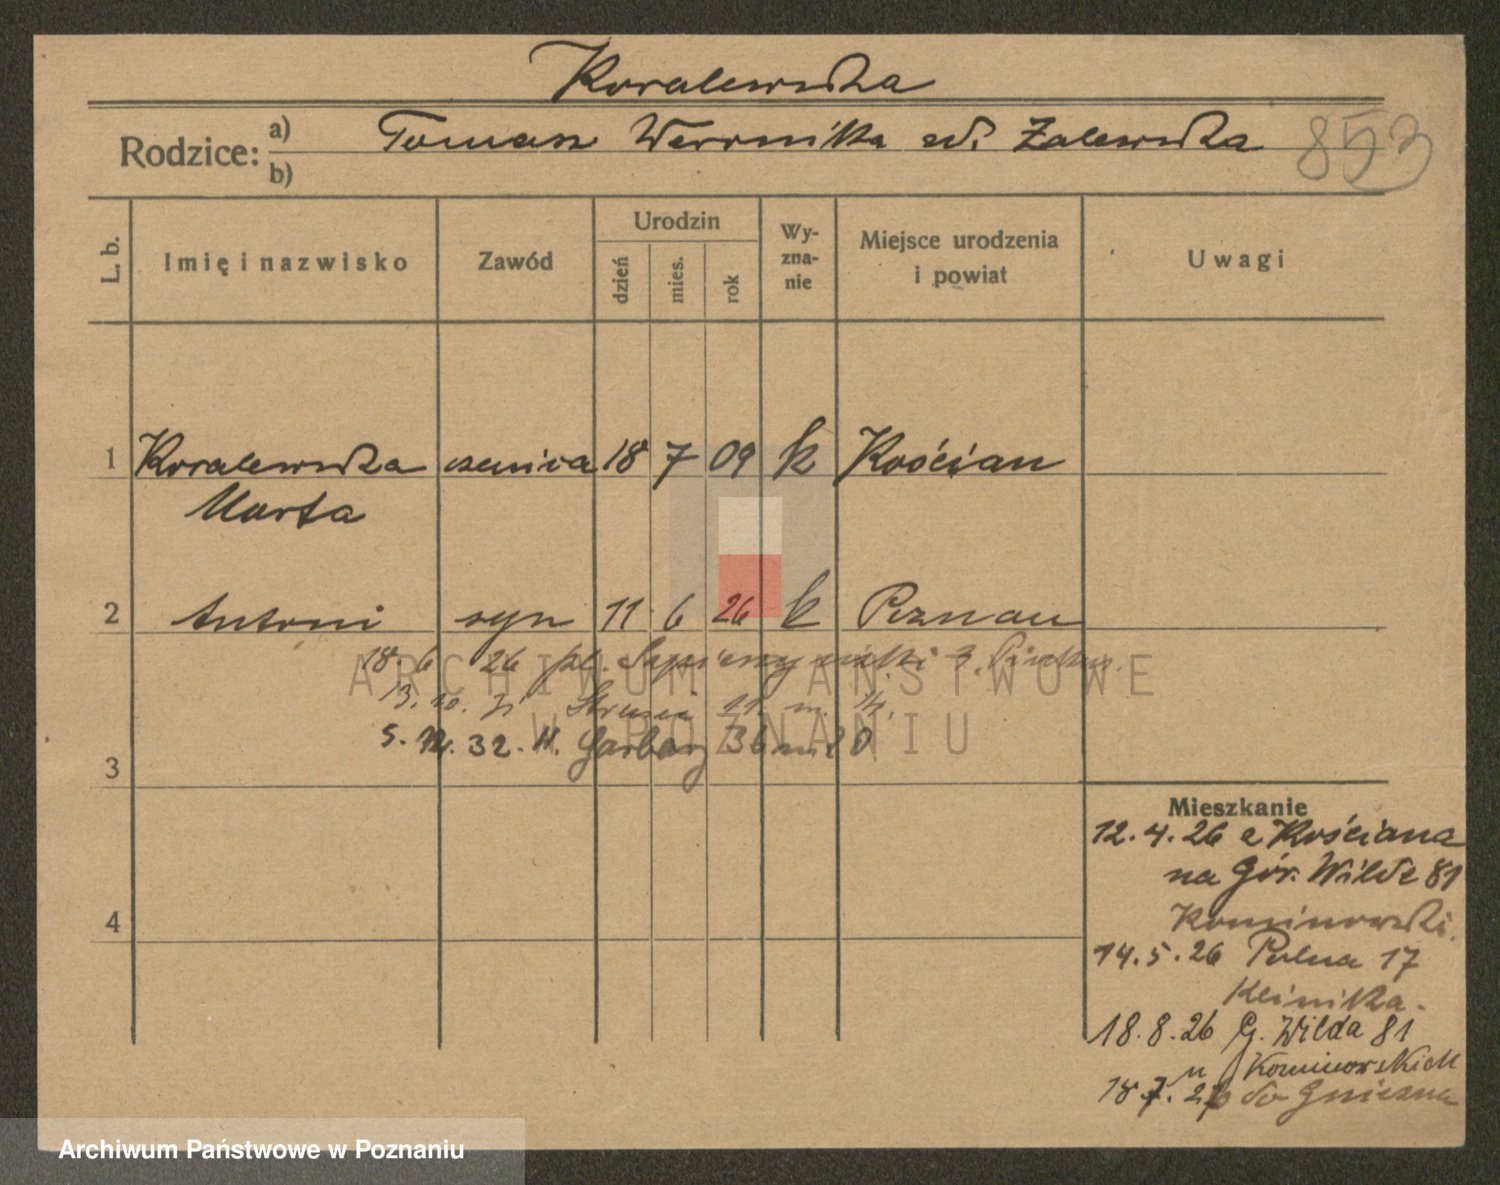 Koralewska
Rodzice: a) Tomasz Weronika ed. Zalewska 853
b)
L. b. Imię i nazwisko Zawód Urodzin dzień mies. rok Wy-zna-nie Miejsce urodzenia i powiat Uwagi
1 Koralewska uczenica 18 7 09 k Kościan
Marta
2 Antoni syn 11 6 26 k Poznań
18. 6 26 pl. Sapieżyński 3.
13. 10. Strusia 11 m.
5. 12. 32. H. Garbary 36 m 20
3
Mieszkanie
12.4.26 z Kościana
na Gór. Wilda 81
Kominowski.
4
14.5.26 Polna 17
Klinika.
18.8.26 G. Wilda 81
u Kominowskich
18.7. do Gniezna
ARCHIWUM PAŃSTWOWE
W POZNANIU
Archiwum Państwowe w Poznaniu